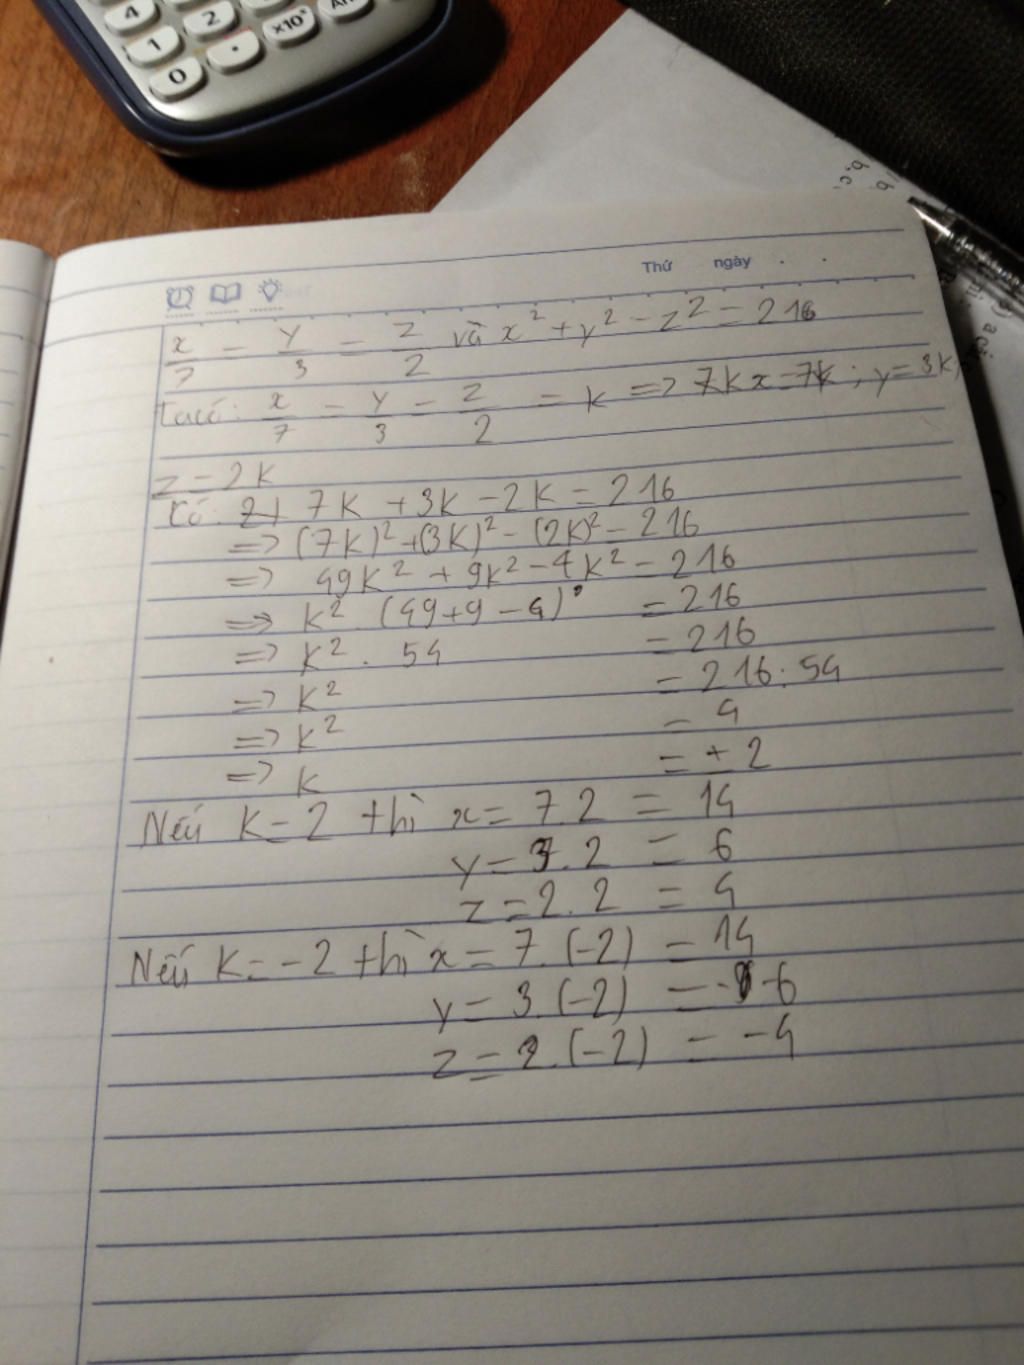 4 2
1 . ×10ˣ An
0
b
b, c
a củ
Thứ ngày . .
x/7 = y/3 = z/2 và x² + y² - z² = 216
Ta có: x/7 = y/3 = z/2 = k => 7k x = 7k ; y = 3k,
z = 2k
Có: 2+ 7k + 3k - 2k = 216
=> (7k)² + (3k)² - (2k)² = 216
=> 49k² + 9k² - 4k² = 216
=> k² . (49 + 9 - 4) = 216
=> k² . 54 = 216
=> k² = 216 : 54
=> k² = 4
=> k = ± 2
Nếu k = 2 thì x = 7.2 = 14
y = 3.2 = 6
z = 2.2 = 4
Nếu k = -2 thì x = 7.(-2) = 14
y = 3.(-2) = -6
z = 2.(-2) = -4